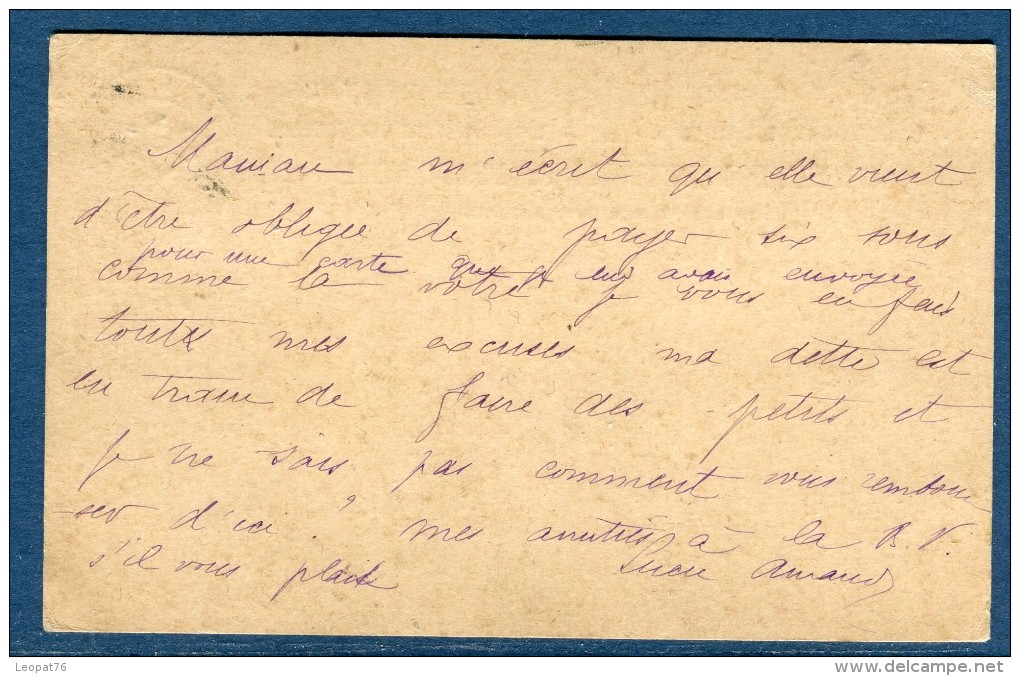 Maman m'écrit qu'elle vient
d'être obligée de payer six sous
pour une carte que je lui avais envoyée
comme la votre je vous en fais
toutes mes excuses ma dette est
en train de faire des petits et
je ne sais pas comment vous rembour
-ser d'ici. mes amitiés à la B. V.
s'il vous plait Lucie Amand
Leopat76
www.delcampe.net